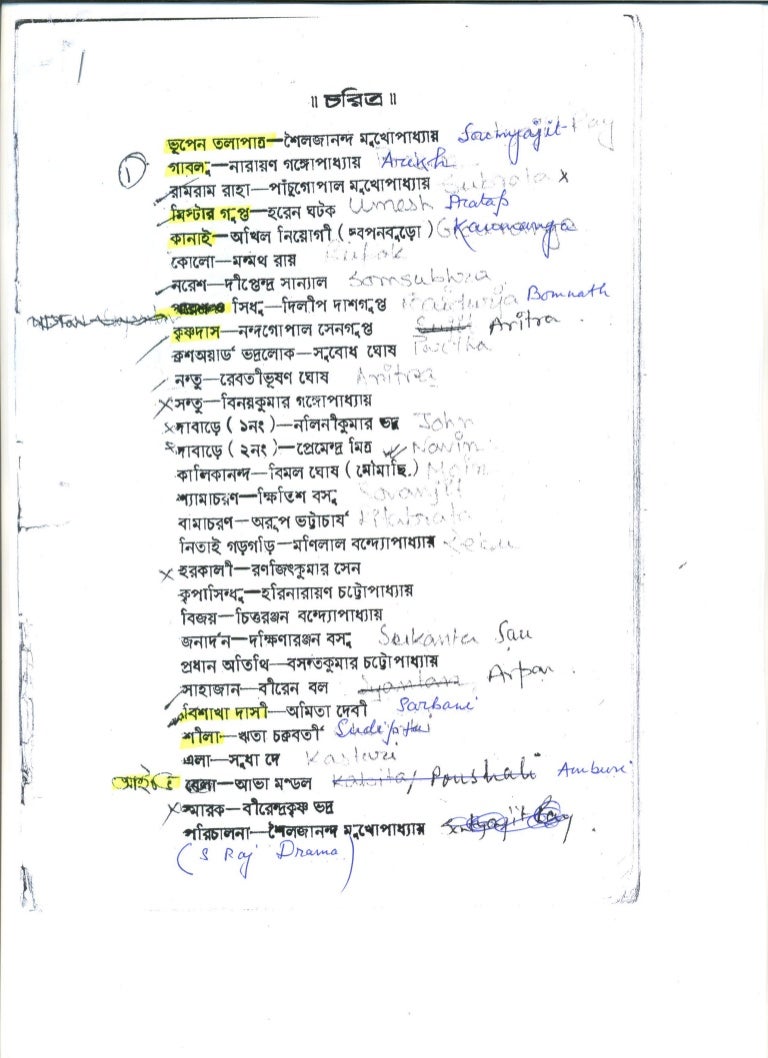 ॥ চরিত্র ॥
ভূপেন তলাপাত্র—শৈলজানন্দ মুখোপাধ্যায় Soumyajit Ray
গাবলু—নারায়ণ গঙ্গোপাধ্যায়
1
রামরাম রাহা—পাঁচুগোপাল মুখোপাধ্যায় x
মিস্টার গুপ্ত—হরেন ঘটক Umesh Pratap
কানাই—অখিল নিয়োগী ( স্বপনবুড়ো )
কোলো—মন্মথ রায়
নরেশ—দীপ্তেন্দ্র সান্যাল Somsubhra
সিধু—দিলীপ দাশগুপ্ত Bomnath
কৃষ্ণদাস—নন্দগোপাল সেনগুপ্ত Aritra
ক্রশওয়ার্ড ভদ্রলোক—সুবোধ ঘোষ Partha
নন্তু—রেবতীভূষণ ঘোষ Aritra
x সন্তু—বিনয়কুমার গঙ্গোপাধ্যায়
x দাবাড়ে ( ১নং )—নলিনীকুমার ভদ্র John
x দাবাড়ে ( ২নং )—প্রেমেন্দ্র মিত্র Navin
কালিকানন্দ—বিমল ঘোষ ( মৌমাছি )
শ্যামাচরণ—ক্ষিতিশ বসু
বামাচরণ—অরূপ ভট্টাচার্য
নিতাই গড়গড়ি—মণিলাল বন্দ্যোপাধ্যায়
x হরকালী—রণজিৎকুমার সেন
কৃপাসিন্ধু—হরিনারায়ণ চট্টোপাধ্যায়
বিজয়—চিত্তরঞ্জন বন্দ্যোপাধ্যায়
জনার্দন—দক্ষিণারঞ্জন বসু Srikanta Sau
প্রধান অতিথি—বসন্তকুমার চট্টোপাধ্যায়
সাহাজান—বীরেন বল Arpan
বিশাখা দাসী—অমিতা দেবী Sarbani
শীলা—ঋতা চক্রবর্তী
এলা—সুধা দে Kasturi
বেলা—আভা মণ্ডল Poushali
x স্মারক—বীরেন্দ্রকৃষ্ণ ভদ্র
পরিচালনা—শৈলজানন্দ মুখোপাধ্যায়
( S Raj Drama )